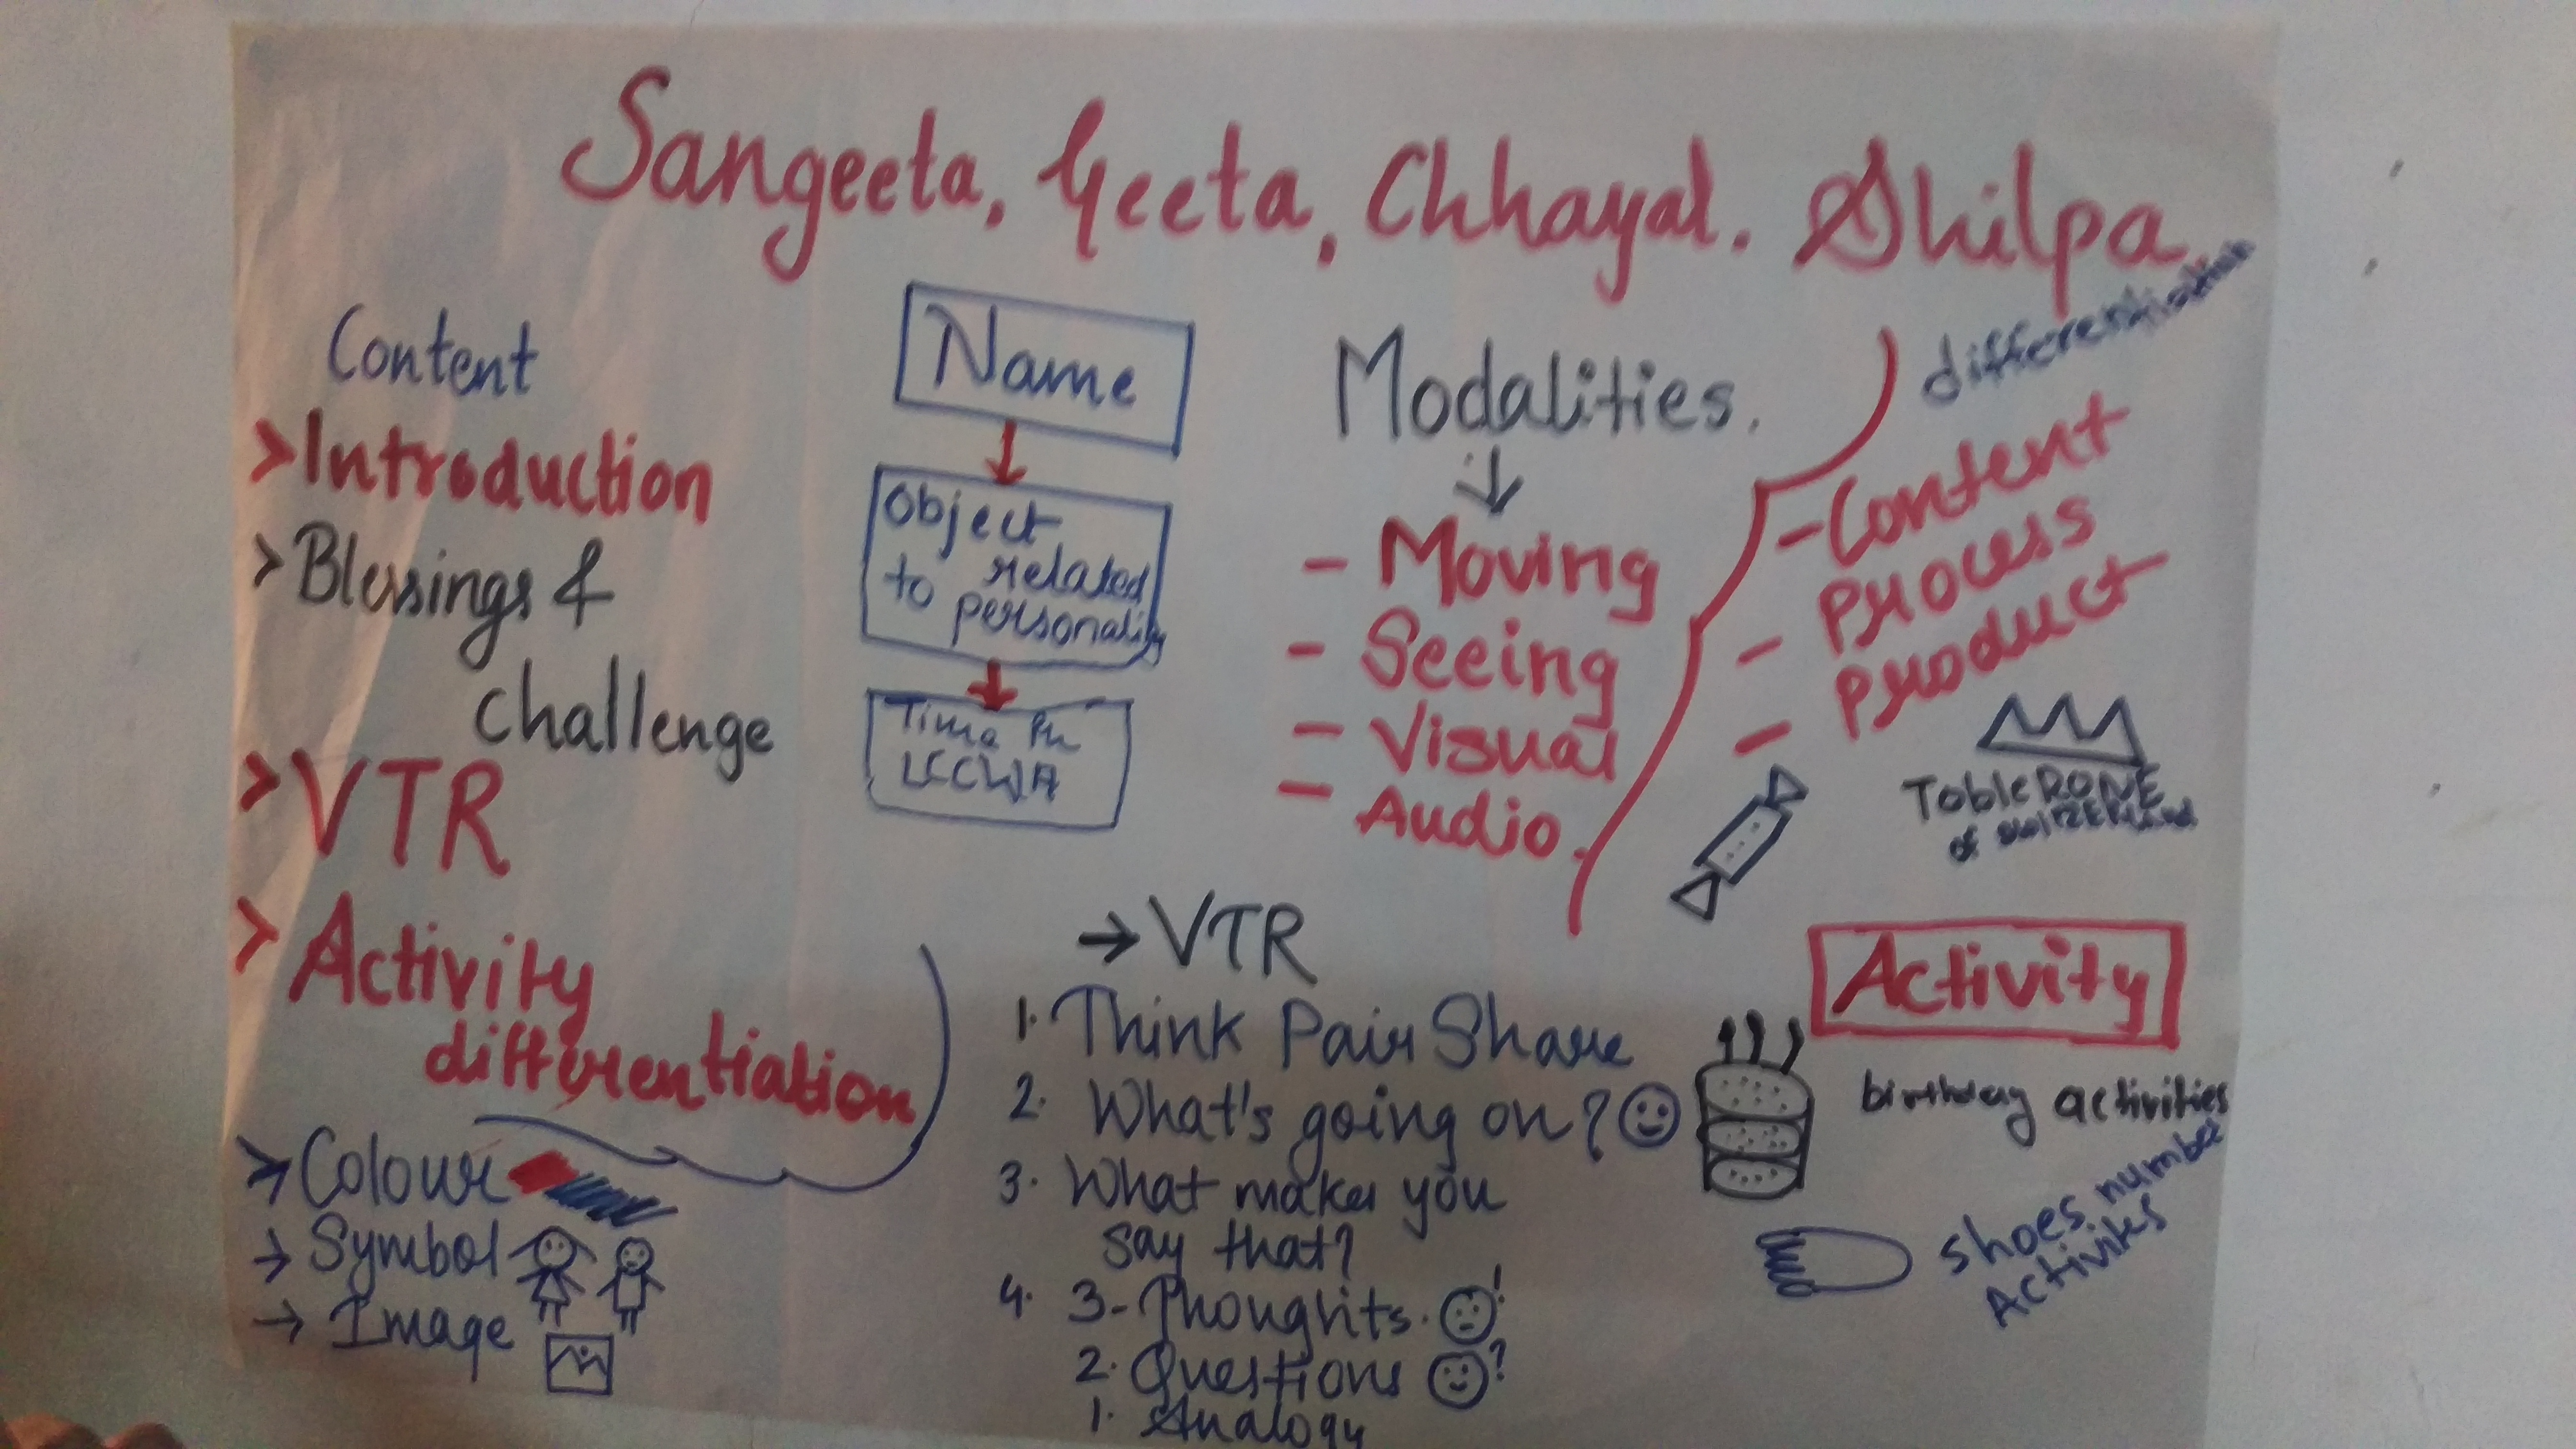 Sangeeta, Geeta, Chhayal. Shilpa
Content
> Introduction
> Blessings &
challenge
> VTR
> Activity
differentiation
> Colour
→ Symbol
→ Image
Name
Object
related
to personality
Time in
LCCWA
Modalities.
- Moving
- Seeing
- Visual
- Audio.
differentiation
- Content
- Process
- Product
TobleRONE
of SWITZERland
→ VTR
1. Think Pair Share
2. What's going on?
3. What makes you
say that?
4. 3- Thoughts. !
2. Questions ?
1. Analogy
Activity
birthday activities
shoes number
Activites